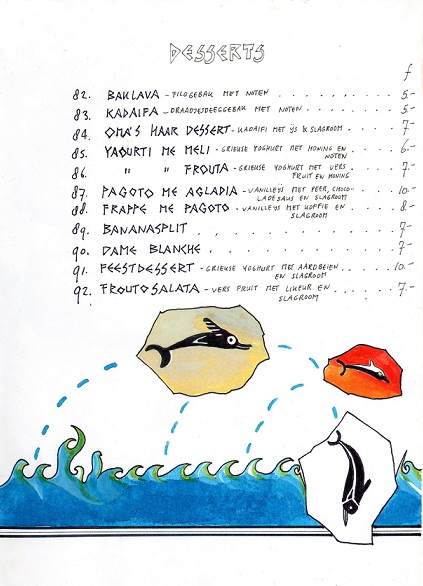 DESSERTS
f
82. BAKLAVA - FILOGEBAK MET NOTEN . . . . . . . . . 5.-
83. KADAIFA - DRAADJESDEEGGEBAK MET NOTEN . . . . . 5.-
84. OMA'S HAAR DESSERT - KADAIFI MET IJS & SLAGROOM . . . . 7.-
85. YAOURTI ME MELI - GRIEKSE YOGHURT MET HONING EN . . . 6.-
NOTEN
86. " " FROUTA - GRIEKSE YOGHURT MET VERS . . . . 7.-
FRUIT EN HONING
87. PAGOTO ME AGLADIA - VANILLEIJS MET PEER, CHOCO- . . 10.-
LADESAUS EN SLAGROOM
88. FRAPPE ME PAGOTO - VANILLEIJS MET KOFFIE EN . . . . 8.-
SLAGROOM
89. BANANASPLIT . . . . . . . . . . . . 7.-
90. DAME BLANCHE . . . . . . . . . . . 7.-
91. FEESTDESSERT - GRIEKSE YOGHURT MET AARDBEIEN . . . . 10.-
EN SLAGROOM
92. FROUTOSALATA - VERS FRUIT MET LIKEUR EN . . . . . 7.-
SLAGROOM